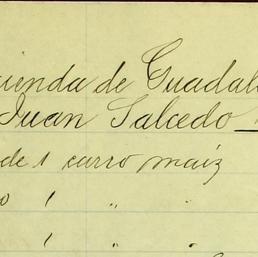 cienda de Guadal
Juan Salcedo
de 1 carro maíz
o 1 " "
1 " "